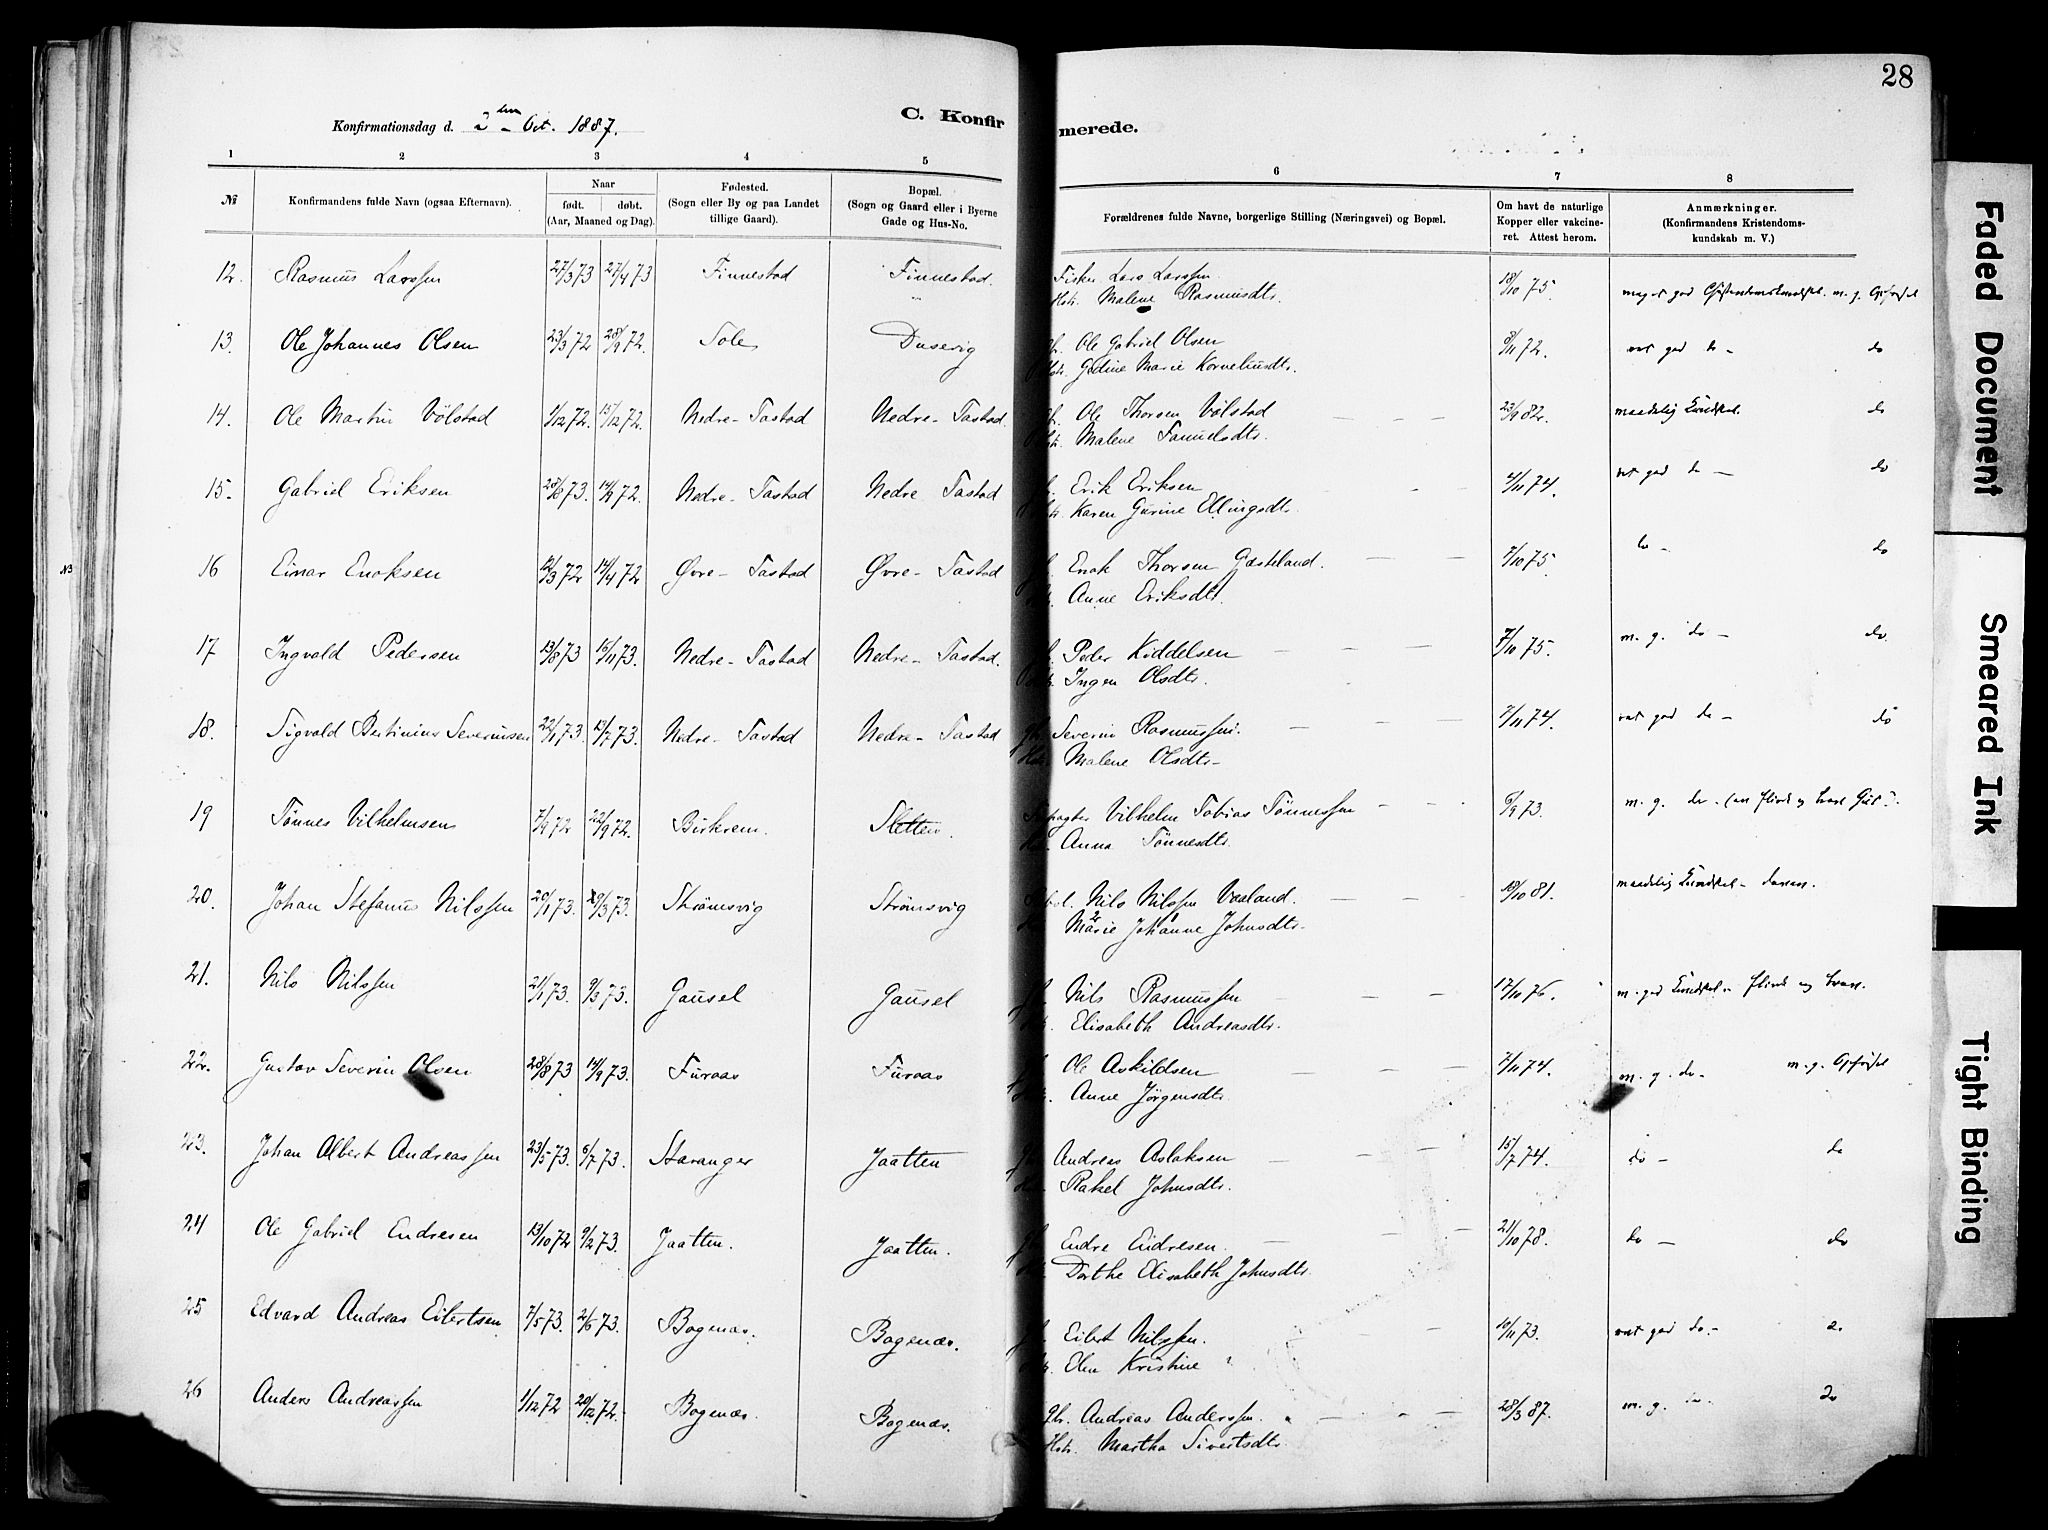 28
Konfirmationsdag d. 2den Oct. 1887.
C. Konfirmerede.
1 2 3 4 5 6 7 8
№
Konfirmandens fulde Navn (ogsaa Efternavn).
Naar
født. døbt.
(Aar, Maaned og Dag).
Fødested.
(Sogn eller By og paa Landet
tillige Gaard).
Bopæl.
(Sogn og Gaard eller i Byerne
Gade og Hus-No.
Forældrenes fulde Navne, borgerlige Stilling (Næringsvei) og Bopæl.
Om havt de naturlige
Kopper eller vakcine-
ret. Attest herom.
Anmærkninger.
(Konfirmandens Kristendoms-
kundskab m. V.)
12. Rasmus Larssen 27/3 73 27/4 73 Finnestad Finnestad Fisker Lars Larssen 18/10 75. meget god Christendomskundskab. m. g. Opførsel
Hstr. Malene Rasmusdtr.
13. Ole Johannes Olsen 23/3 72 28/9 72. Sole Dusevig Ole Gabriel Olsen 8/11 72. do - do
Marie Korneliusdtr.
14. Ole Martin Völstad 1/12 72. 15/12 72. Nedre-Tastad Nedre-Tastad. Ole Thorsen Völstad 23/9 82. maadelig Kundskab. do
Malene Samuelsdtr.
15. Gabriel Eriksen 28/8 73. 14/9 72. Nedre-Tastad Nedre Tastad Erik Eriksen 4/11 74. god do - do
Karen Gurine Ellingsdtr.
16 Einar Enoksen 12/3 72 14/4 72 Øvre-Tastad Øvre-Tastad Enok Thorsen Gæsteland. 7/10 75. do - do
Anne Eriksdtr.
17 Ingvald Pedersen 13/8 73 16/11 73. Nedre-Tastad Nedre-Tastad. Peder Kiddelsen 7/10 75. m. g. do - do.
Ingen Olsdtr.
18. Sigvald Bertinius Severinsen 22/1 73 13/7 73. Nedre-Tastad Nedre-Tastad Severin Rasmussen. 7/11 74. god do - do
Malene Olsdtr.
19 Tönnes Vilhelmsen 7/9 72 22/9 72. Birkrem. Sletten. Vilhelm Tobias Tönnessen 9/9 73. m. g. do.
Anna Tönnesdtr.
20. Johan Stefanus Nilssen 20/1 73. 9/3 73. Strömsvig Strömsvig Nils Nilssen Vaaland. 19/10 81. maadelig Kundskab
Marie Johanne Johnsdtr.
21. Nils Nilssen 21/1 73. 9/3 73. Gausel Gausel Nils Rasmussen 17/10 76. m. god Kundskab - flink og
Elisabeth Andreasdtr.
22. Gustav Severin Olsen 28/8 73 14/9 73. Furaas Furaas Ole Askildsen 7/11 74. m. g. do - m. g. Opførsel
Anne Jørgensdtr.
23. Johan Albert Andreassen 23/5 73. 6/7 73. Stavanger Jaatten Andreas Aslaksen 15/7 74. do - do
Rakel Johnsdtr.
24 Ole Gabriel Endresen 13/10 72 9/2 73. Jaatten. Jaatten. Endre Endresen. 21/10 78. do - do
Dorthe Elisabeth Johnsdtr.
25 Edvard Andreas Eilertsen 7/5 73. 2/6 73. Bogenæs. Bogenæs. Eilert Nilssen. 10/11 73. god do.-
Elen Kristine "
26 Anders Andreassen 1/12 72 20/12 72. Bogenæs. Bogenæs. Gbr. Andreas Anderssen. 28/3 87. m. g. do. do
Hstr. Martha Sivertsdtr.
Faded Document
Smeared Ink
Tight Binding